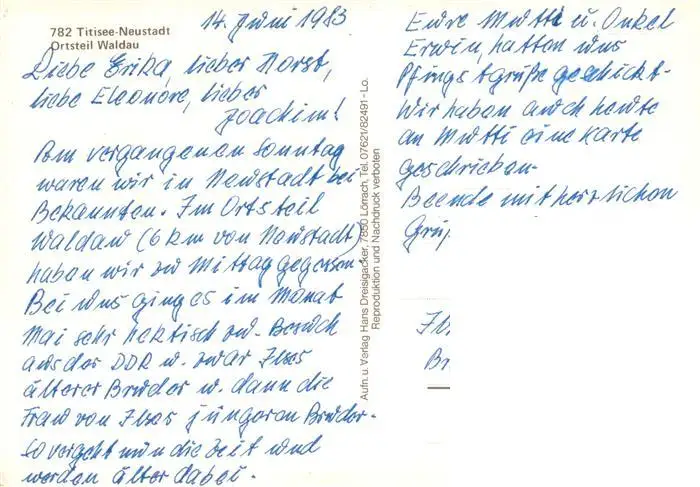 14. Juni 1983
782 Titisee-Neustadt
Ortsteil Waldau
Liebe Erika, lieber Horst,
liebe Eleonore, lieber
Joachim!
Am vergangenen Sonntag
waren wir in Neustadt bei
Bekannten. Im Ortsteil
Waldau (6 km von Neustadt)
haben wir zu Mittag gegessen.
Bei uns ging es im Monat
Mai sehr hektisch zu. Besuch
aus der DDR u. zwar Ilses
älterer Bruder u. dann die
Frau von Ilses jüngeren Bruder.
So vergeht nun die Zeit und
werden älter dabei.
Aufn. u. Verlag Hans Dreisigacker, 7850 Lörrach, Tel. 07621/82491 - Lo.
Reproduktion und Nachdruck verboten
Eure Mutti u. Onkel
Erwin, hatten uns
Pfingstgrüße geschickt.
Wir haben auch heute
an Mutti eine Karte
geschrieben.
Beende mit herzlichen
Grüß
Ils
Br